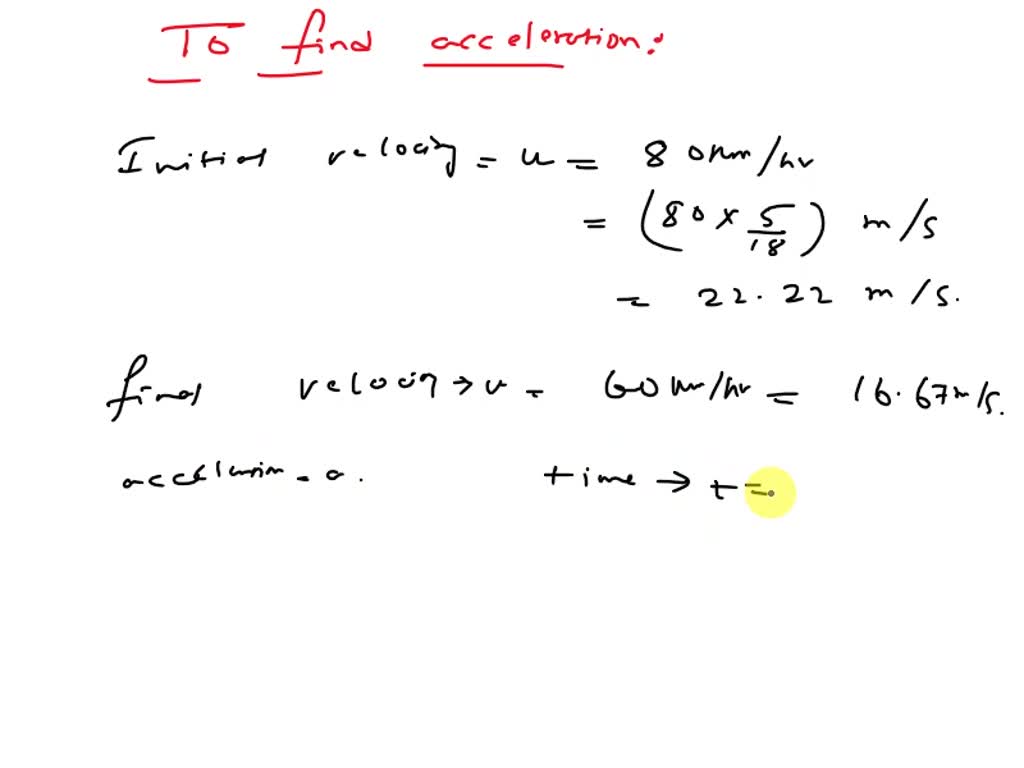 To find acceleration:
Initial velocity = u = 80 km/hr
= (80 × 5/18) m/s
= 22.22 m/s.
final velocity → v = 60 km/hr = 16.67 m/s.
acceleration = a. time → t =